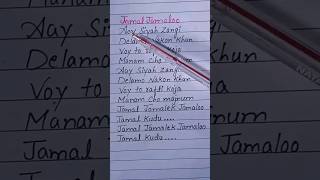 Jamal Jamaloo
Aay Siyah Zangi
Delamo Nakon Khun
Voy to Koja
Manam Cho
Aay Siyah Zangi
Delamo Nakon Khun
Voy to raftl Koja
Manam Cho majnum
Jamal Jamalek Jamaloo
Jamal Kudu....
Jamal Jamalek Jamaloo
Jamal Kudu....